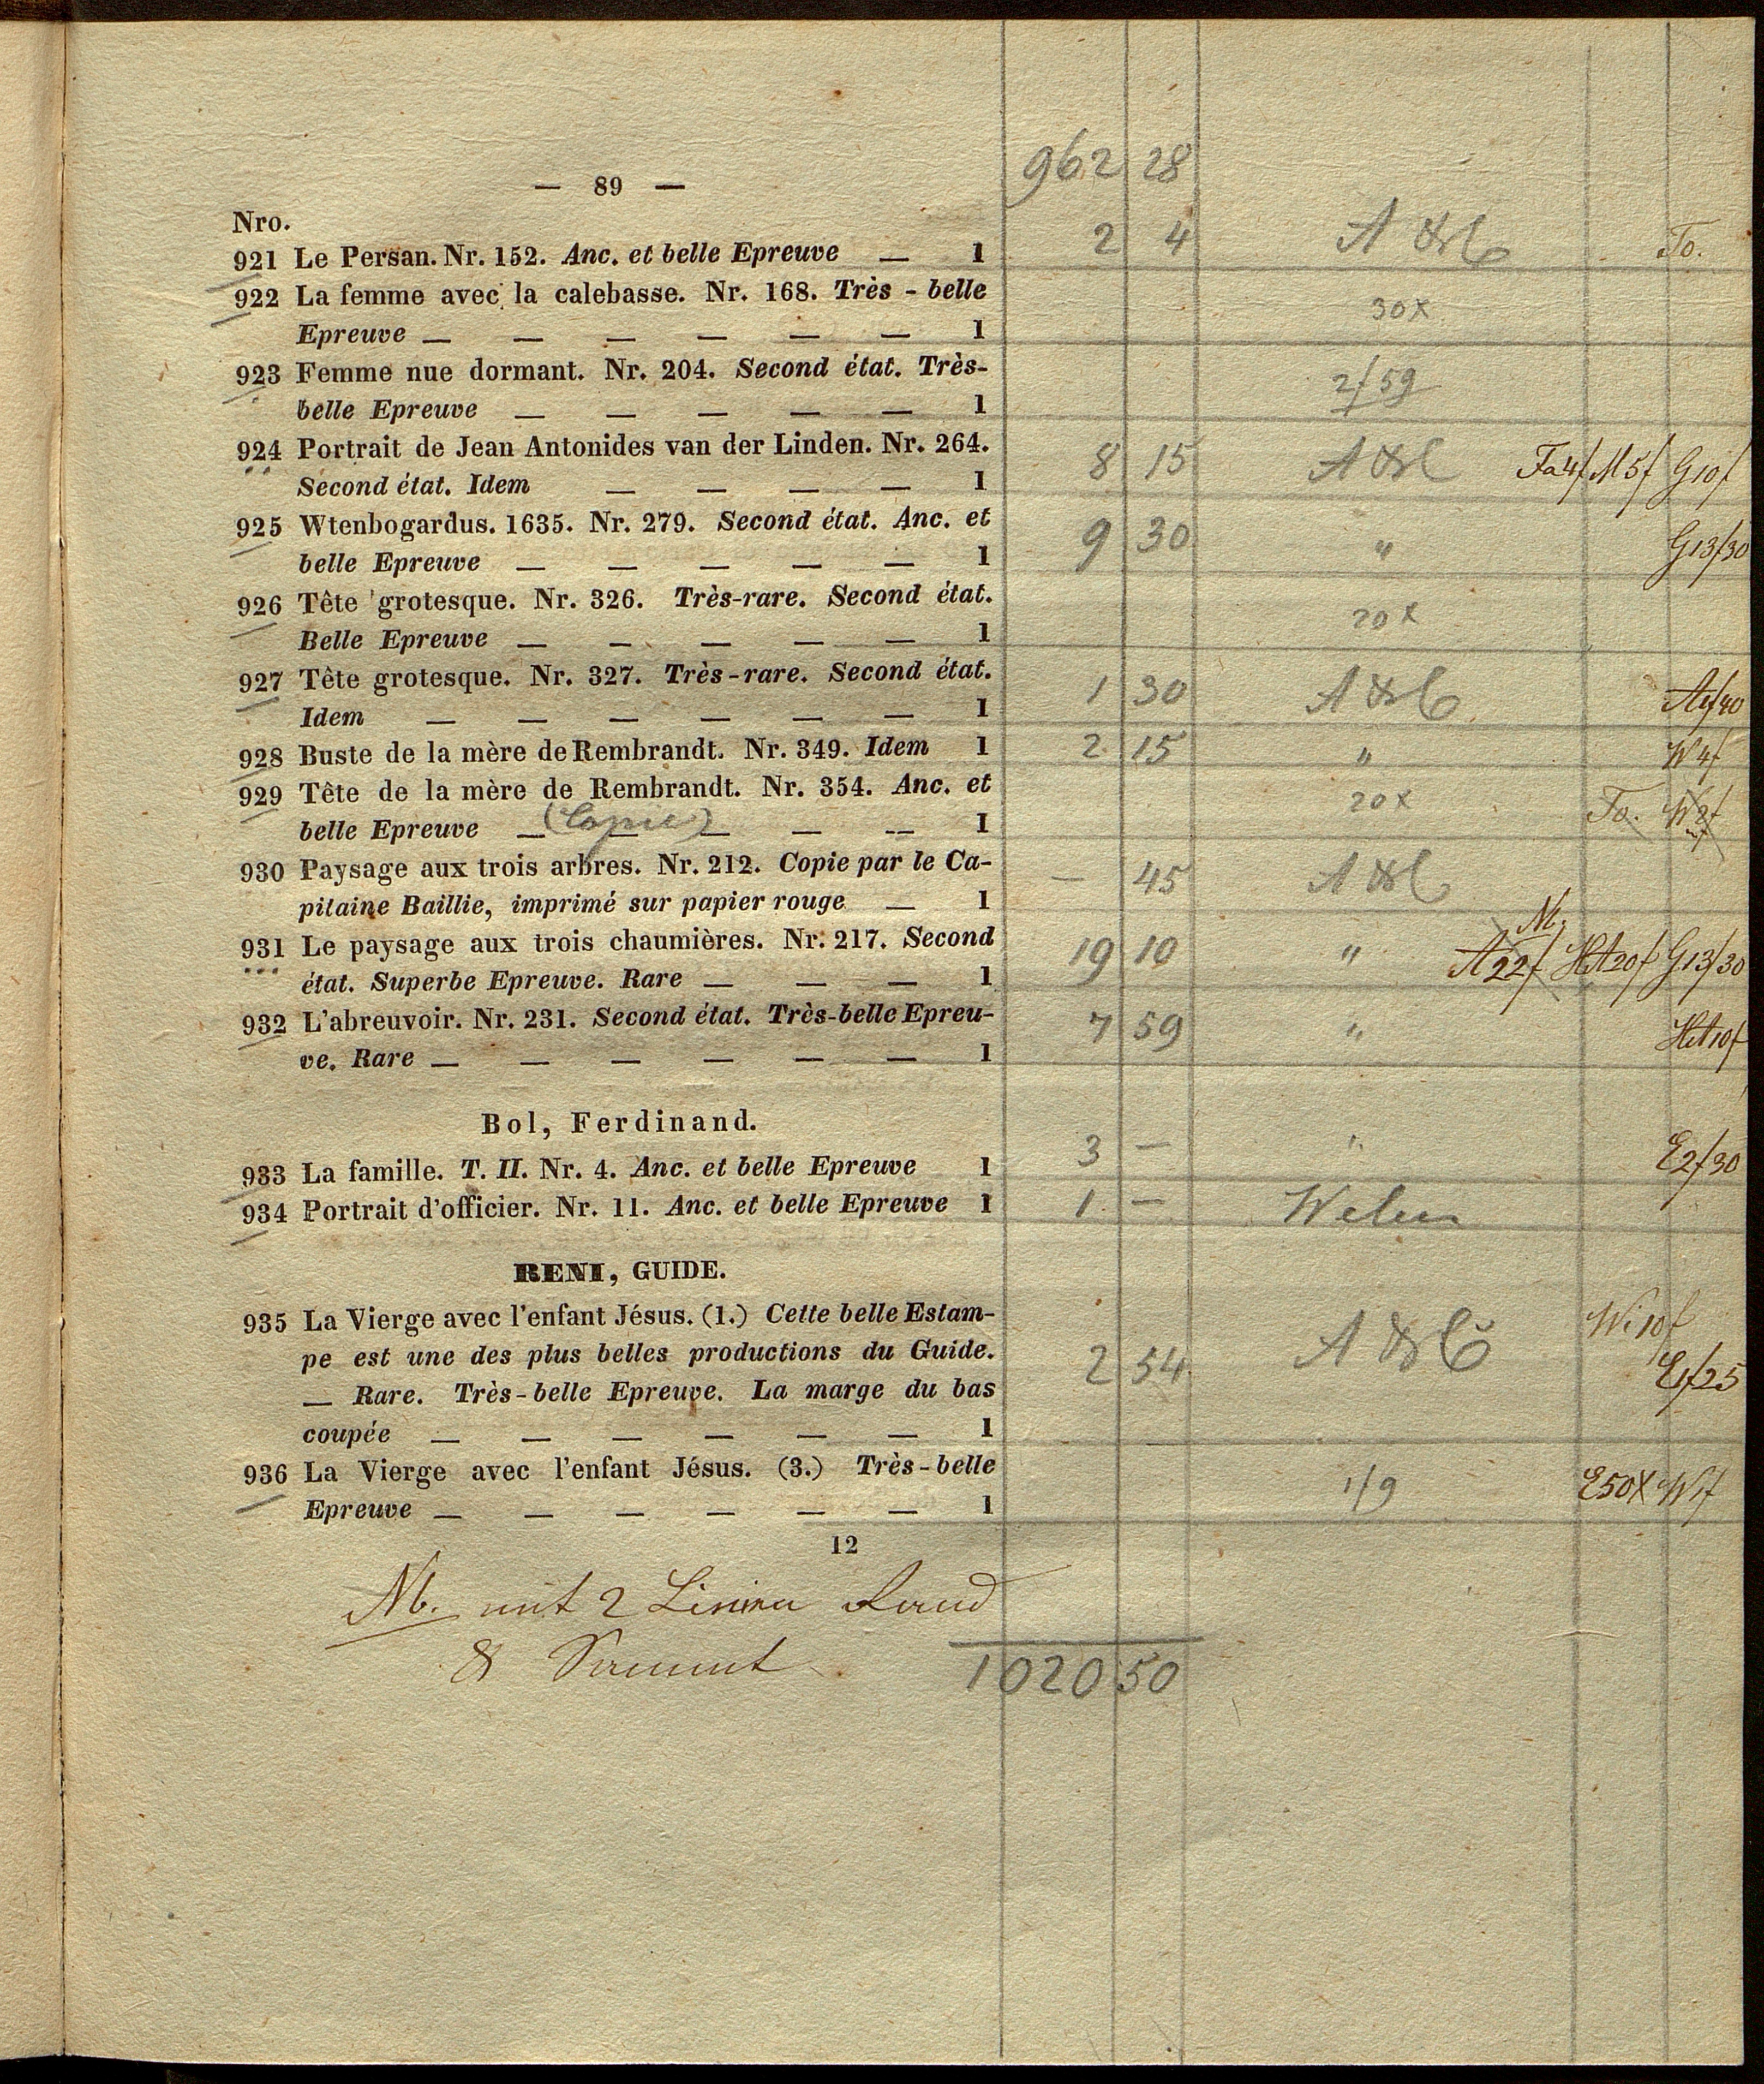 962 28
— 89 —
Nro.
921 Le Persan. Nr. 152. Anc. et belle Epreuve — 1 2 4 A & C To.
922 La femme avec la calebasse. Nr. 168. Très - belle
Epreuve — — — — — — 1 30x
923 Femme nue dormant. Nr. 204. Second état. Très-
belle Epreuve — — — — — 1 2f 59
924 Portrait de Jean Antonides van der Linden. Nr. 264.
Second état. Idem — — — — 1 8 15 A & C Fa4f M5f G10f
925 Wtenbogardus. 1635. Nr. 279. Second état. Anc. et
belle Epreuve — — — — — 1 9 30 " G13f30
926 Tête grotesque. Nr. 326. Très-rare. Second état.
Belle Epreuve — — — — — 1 20x
927 Tête grotesque. Nr. 327. Très-rare. Second état.
Idem — — — — — — 1 1 30 A & C
928 Buste de la mère de Rembrandt. Nr. 349. Idem 1 2 15 " W4f
929 Tête de la mère de Rembrandt. Nr. 354. Anc. et
belle Epreuve — (Copie) — — -- 1 20x To. W2f
930 Paysage aux trois arbres. Nr. 212. Copie par le Ca-
pitaine Baillie, imprimé sur papier rouge — 1 — 45 A & C
931 Le paysage aux trois chaumières. Nr. 217. Second
état. Superbe Epreuve. Rare — — — 1 19 10 " A22f HA20f G13f30
932 L'abreuvoir. Nr. 231. Second état. Très-belle Epreu-
ve. Rare — — — — — — 1 7 59 " HA10f
Bol, Ferdinand.
933 La famille. T. II. Nr. 4. Anc. et belle Epreuve 1 3 — " E2f30
934 Portrait d'officier. Nr. 11. Anc. et belle Epreuve 1 1 —
RENI, GUIDE.
935 La Vierge avec l'enfant Jésus. (1.) Cette belle Estam-
pe est une des plus belles productions du Guide.
— Rare. Très-belle Epreuve. La marge du bas
coupée — — — — — — 1 2 54 A & C Wi10f E1f25
936 La Vierge avec l'enfant Jésus. (3.) Très-belle
Epreuve — — — — — — 1 1f9 E50x W1f
12
mit 2 Linien Rand
&
1020 50